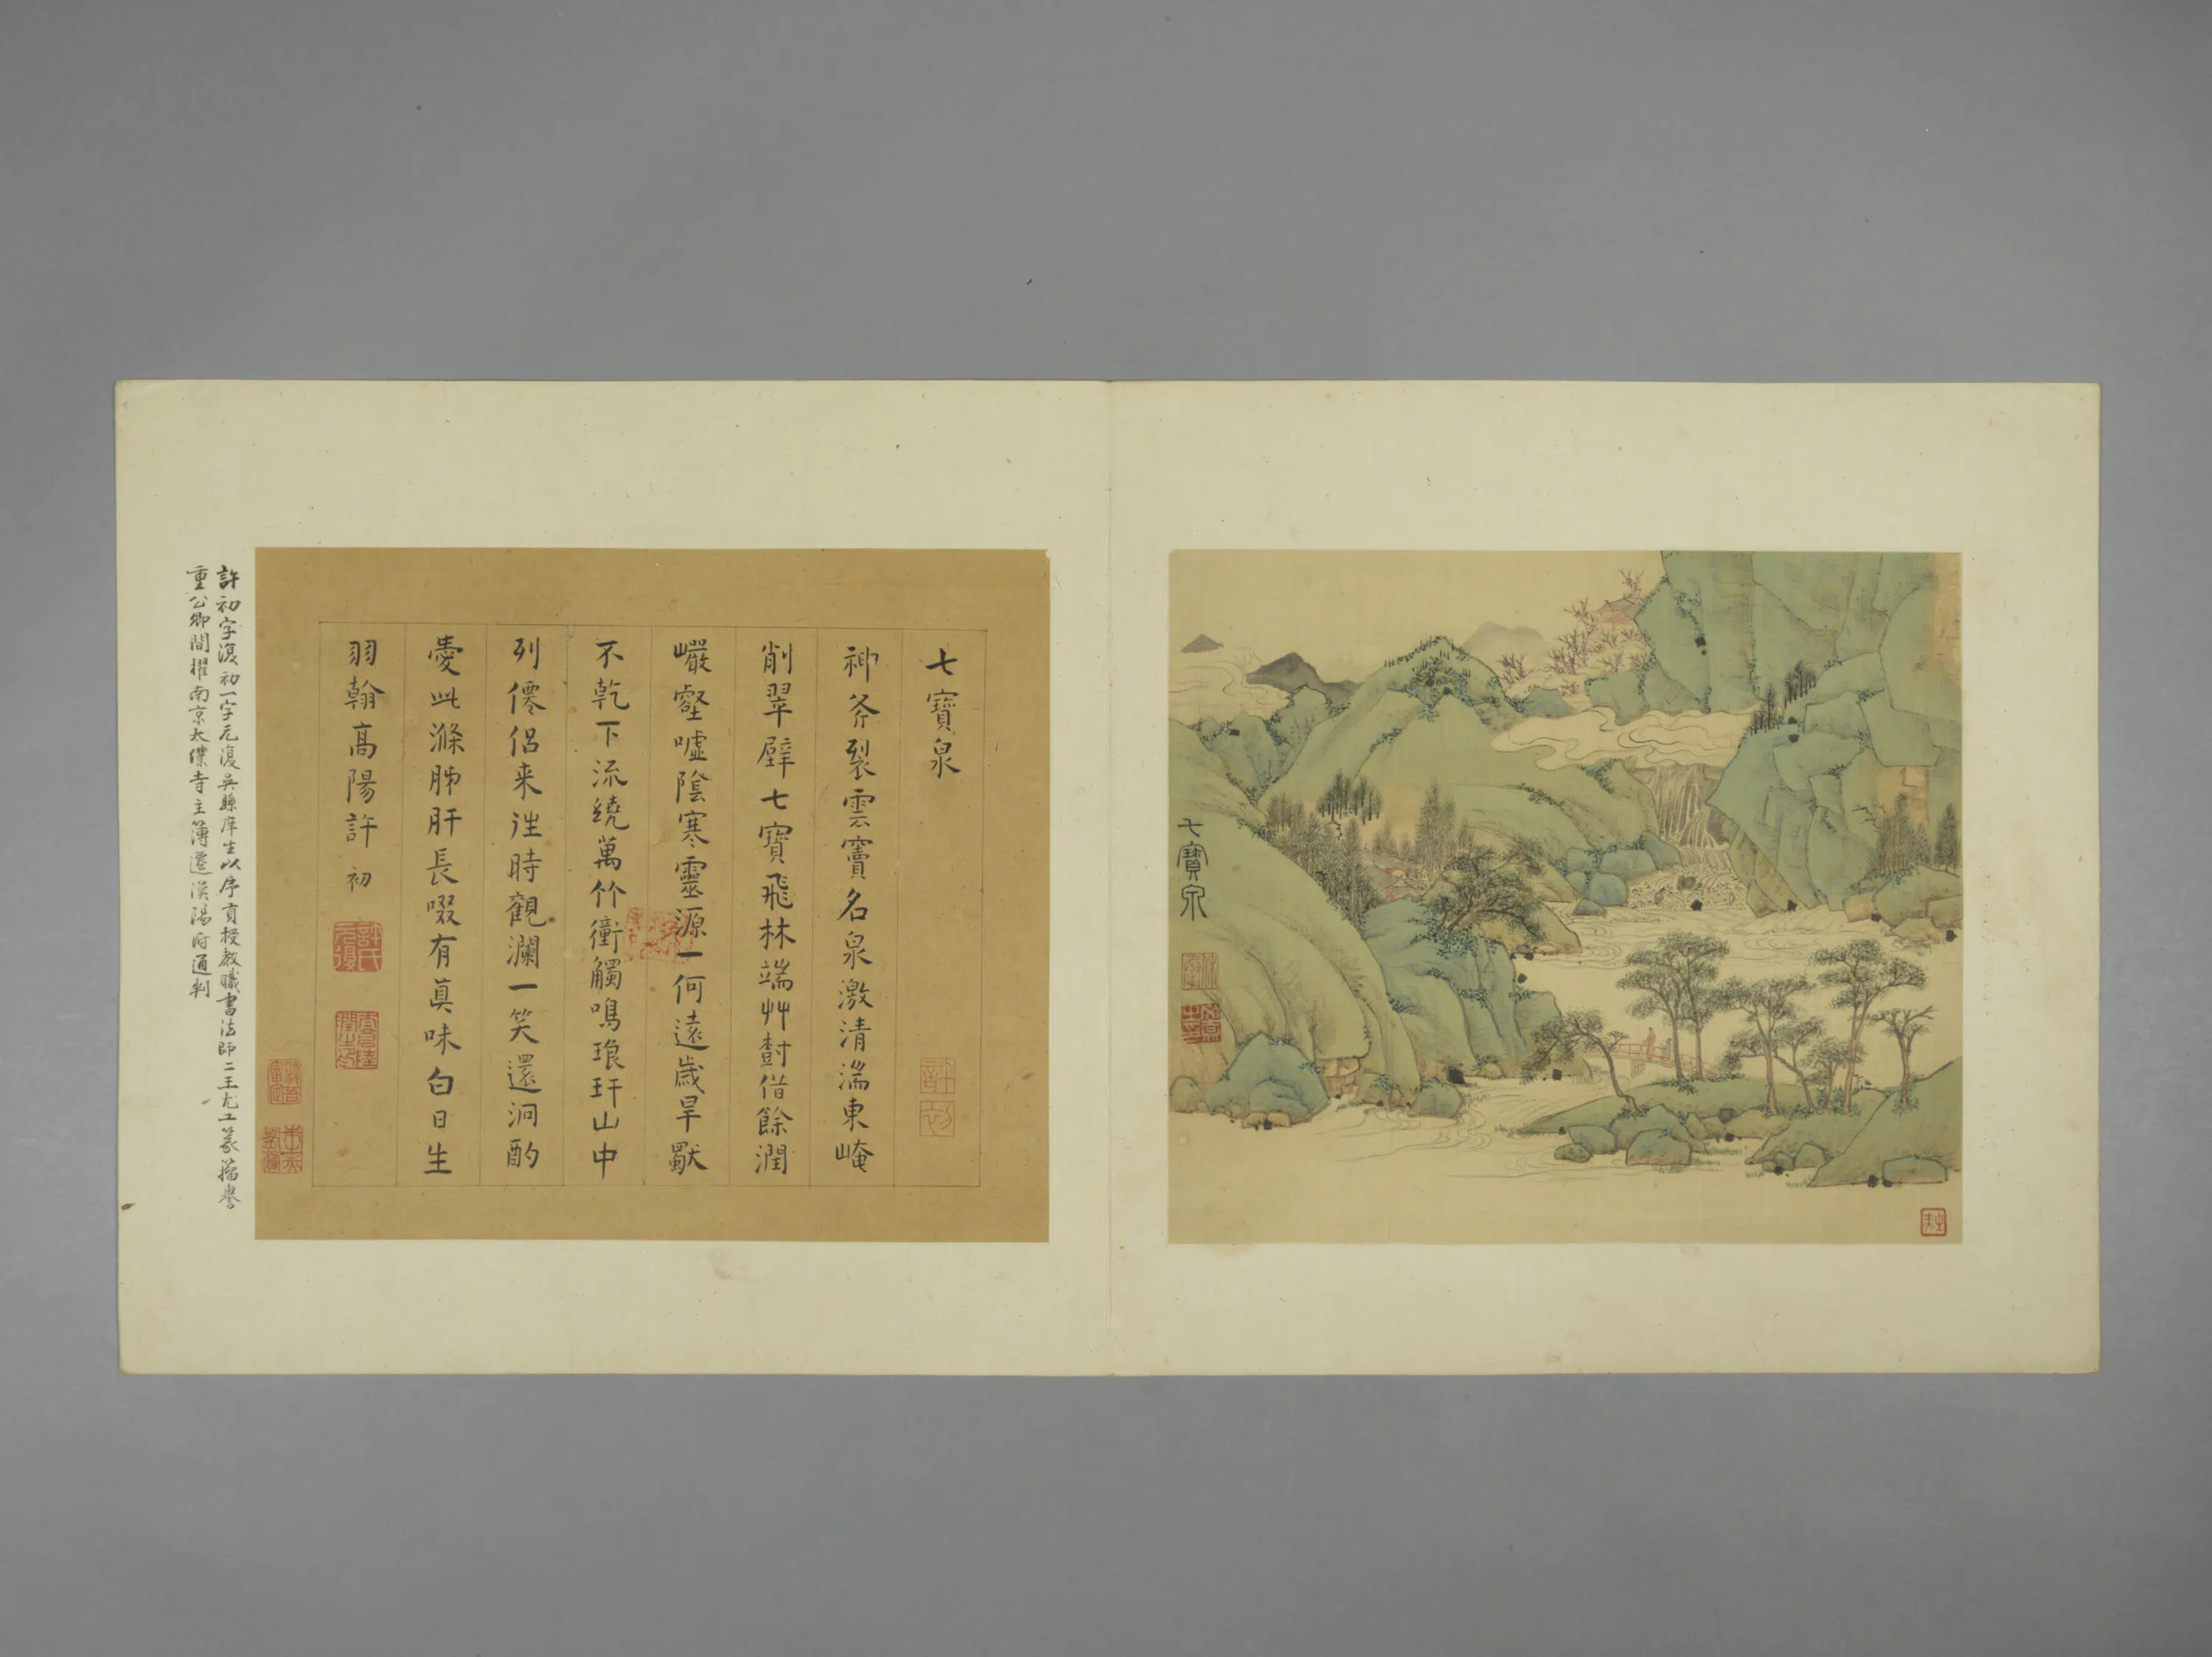 七寶泉
七寶泉
神斧裂雲竇名泉激清湍東崦
削翠壁七寶飛林端艸樹借餘潤
巗壑噓陰寒靈源一何遠歲旱獸
不乾下流繞萬竹衝觸鳴琅玕山中
列僊侶来往時觀瀾一笑還泂酌
愛此滌肺肝長啜有真味白日生
羽翰高陽許初
許初
許氏元復
許初字復初一字元復吳縣庠生以序貢授教職書法師二王尤工篆籀譽
重公卿間擢南京太僕寺主簿遷漢陽府通判